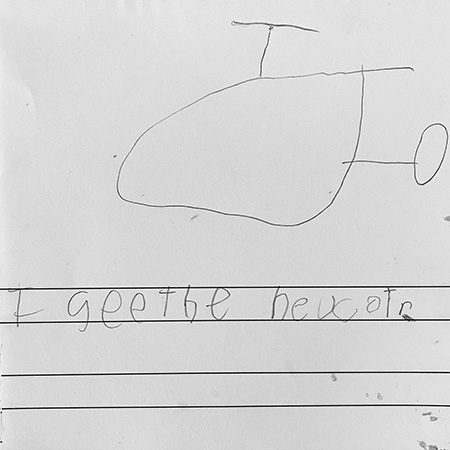 I geethe heucotr